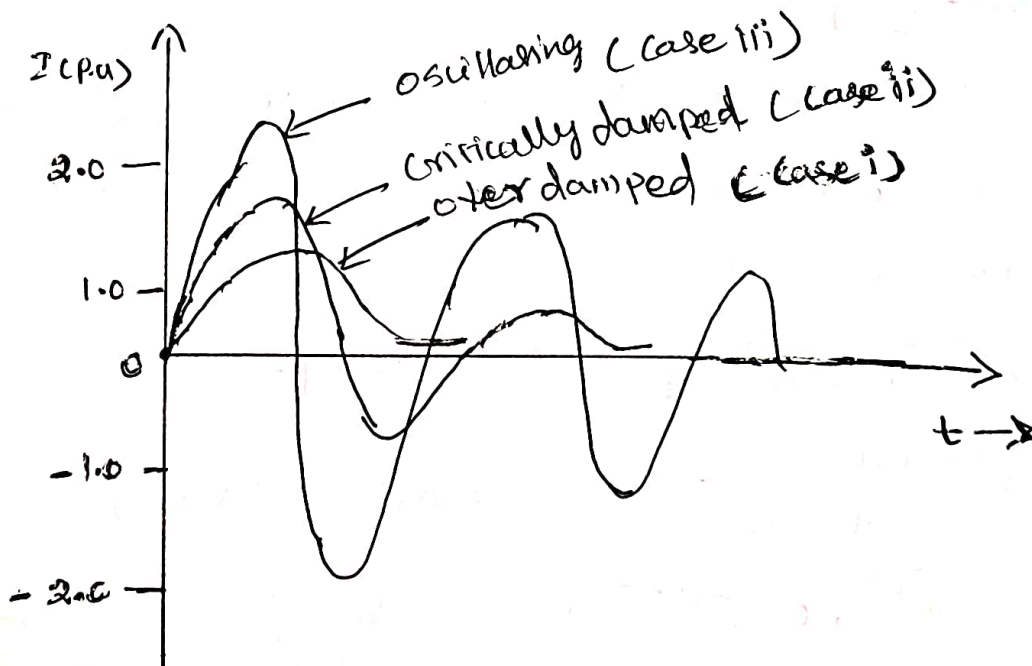 I (P.u)
oscillating (case iii)
critically damped (case ii)
over damped (case i)
2.0
1.0
0
-1.0
-2.0
t →